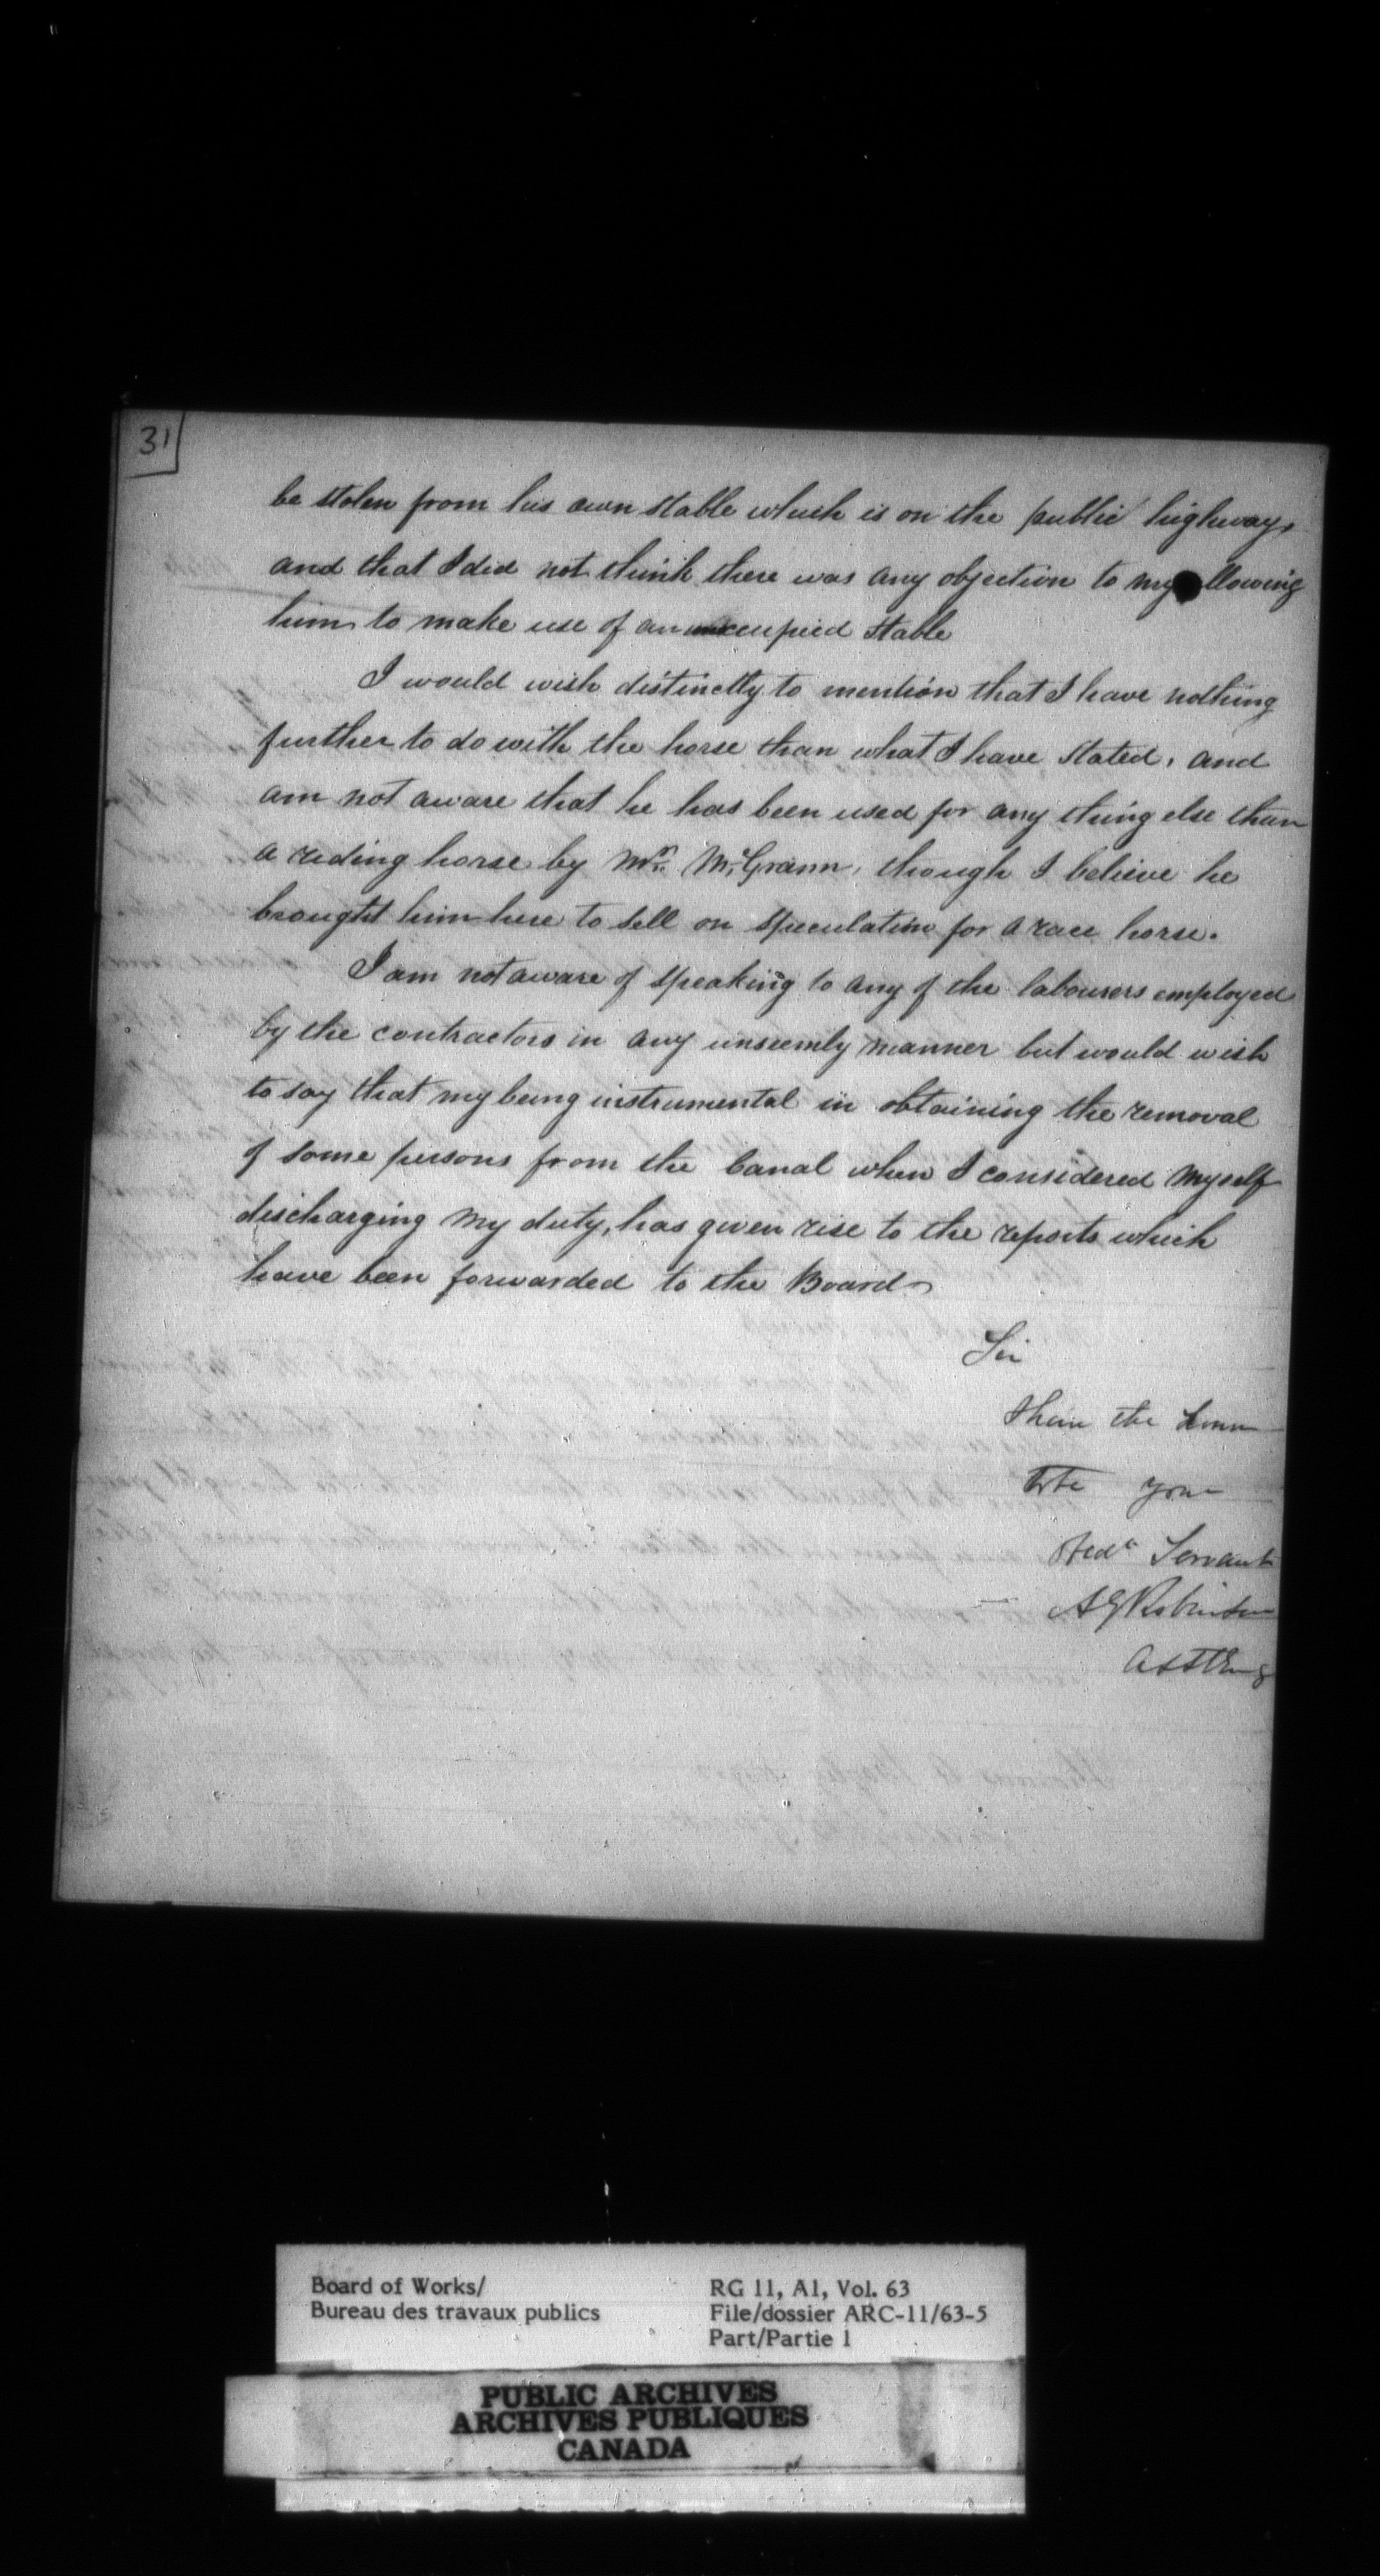 31
be stolen from his own stable which is on the public highway,
and that I did not think there was any objection to my allowing
him to make use of an unoccupied stable
I would wish distinctly to mention that I have nothing
further to do with the horse than what I have stated, and
am not aware that he has been used for any thing else than
a reding horse by Mr. McGrann, though I believe he
brought him here to sell on speculation for a race horse.
I am not aware of speaking to any of the labourers employed
by the contractors in any unseemly manner but would wish
to say that my being instrumental in obtaining the removal
of some persons from the Canal when I considered myself
discharging my duty, has given rise to the reports which
have been forwarded to the Board
Sir
I have the honor
to be your
Obedt Servant
A G Robinson
Asst Eng
Board of Works/
Bureau des travaux publics
RG 11, A1, Vol. 63
File/dossier ARC-11/63-5
Part/Partie 1
PUBLIC ARCHIVES
ARCHIVES PUBLIQUES
CANADA